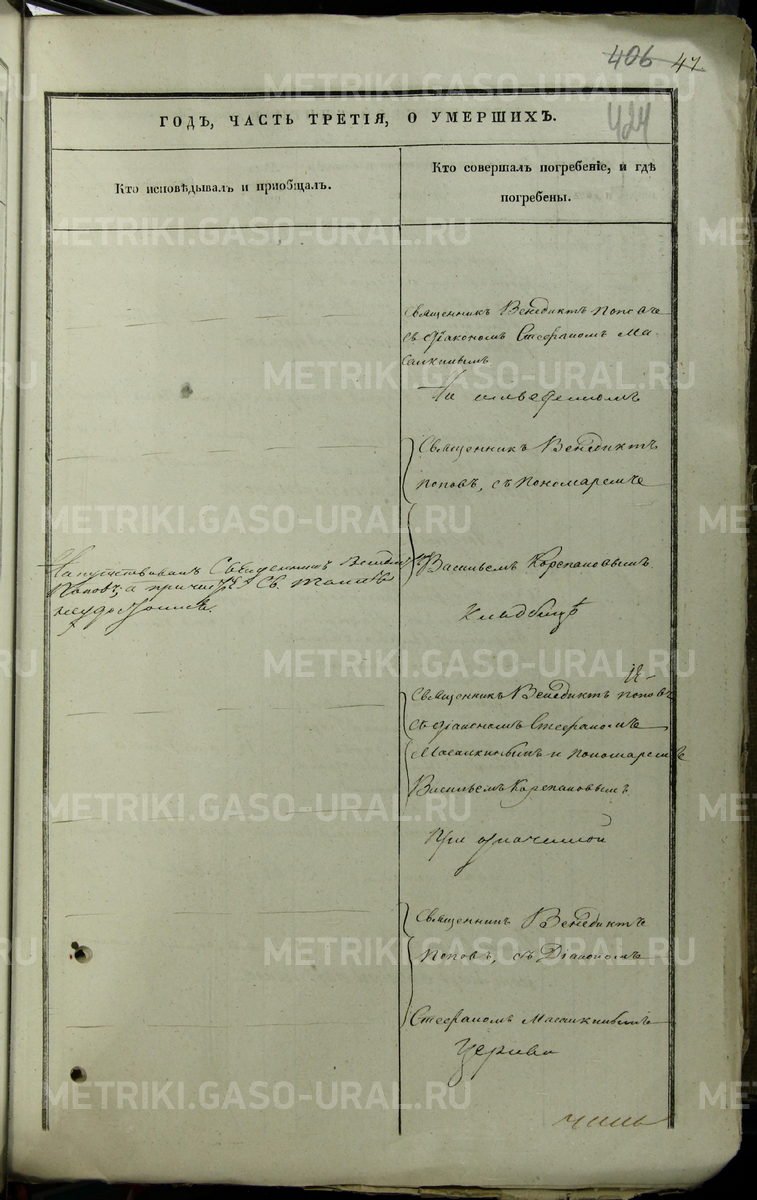 406 47
424
ГОДЪ, ЧАСТЬ ТРЕТІЯ, О УМЕРШИХЪ.
Кто исповѣдывалъ и пріобщалъ.
Кто совершалъ погребеніе, и гдѣ
погребены.
Священникъ Венедиктъ Поповъ
съ Діакономъ Стефаномъ Ма-
салкинымъ
На отведенномъ
Священникъ Венедиктъ
Поповъ, съ Пономаремъ
Васильемъ Корепановымъ
Напутствовалъ Священникъ
Поповъ, а Св. Таинъ
неудостоился.
Кладбищѣ
Священникъ Венедиктъ Поповъ
съ Діакономъ Стефаномъ
Масалкинымъ и Пономаремъ
Васильемъ Корепановымъ
При означенной
Священникъ Венедиктъ
Поповъ, съ Діакономъ
Стефаномъ Масалкинымъ
Церкви
METRIKI.GASO-URAL.RU